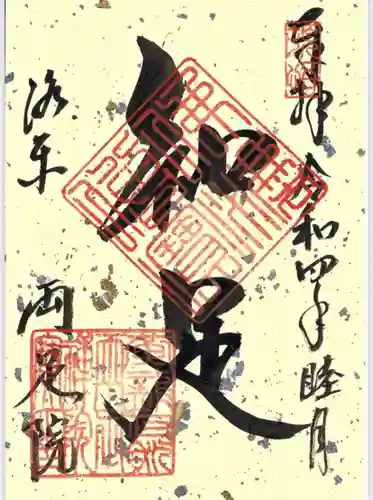 奉拝 令和四年睦月
和足
洛東
両足院